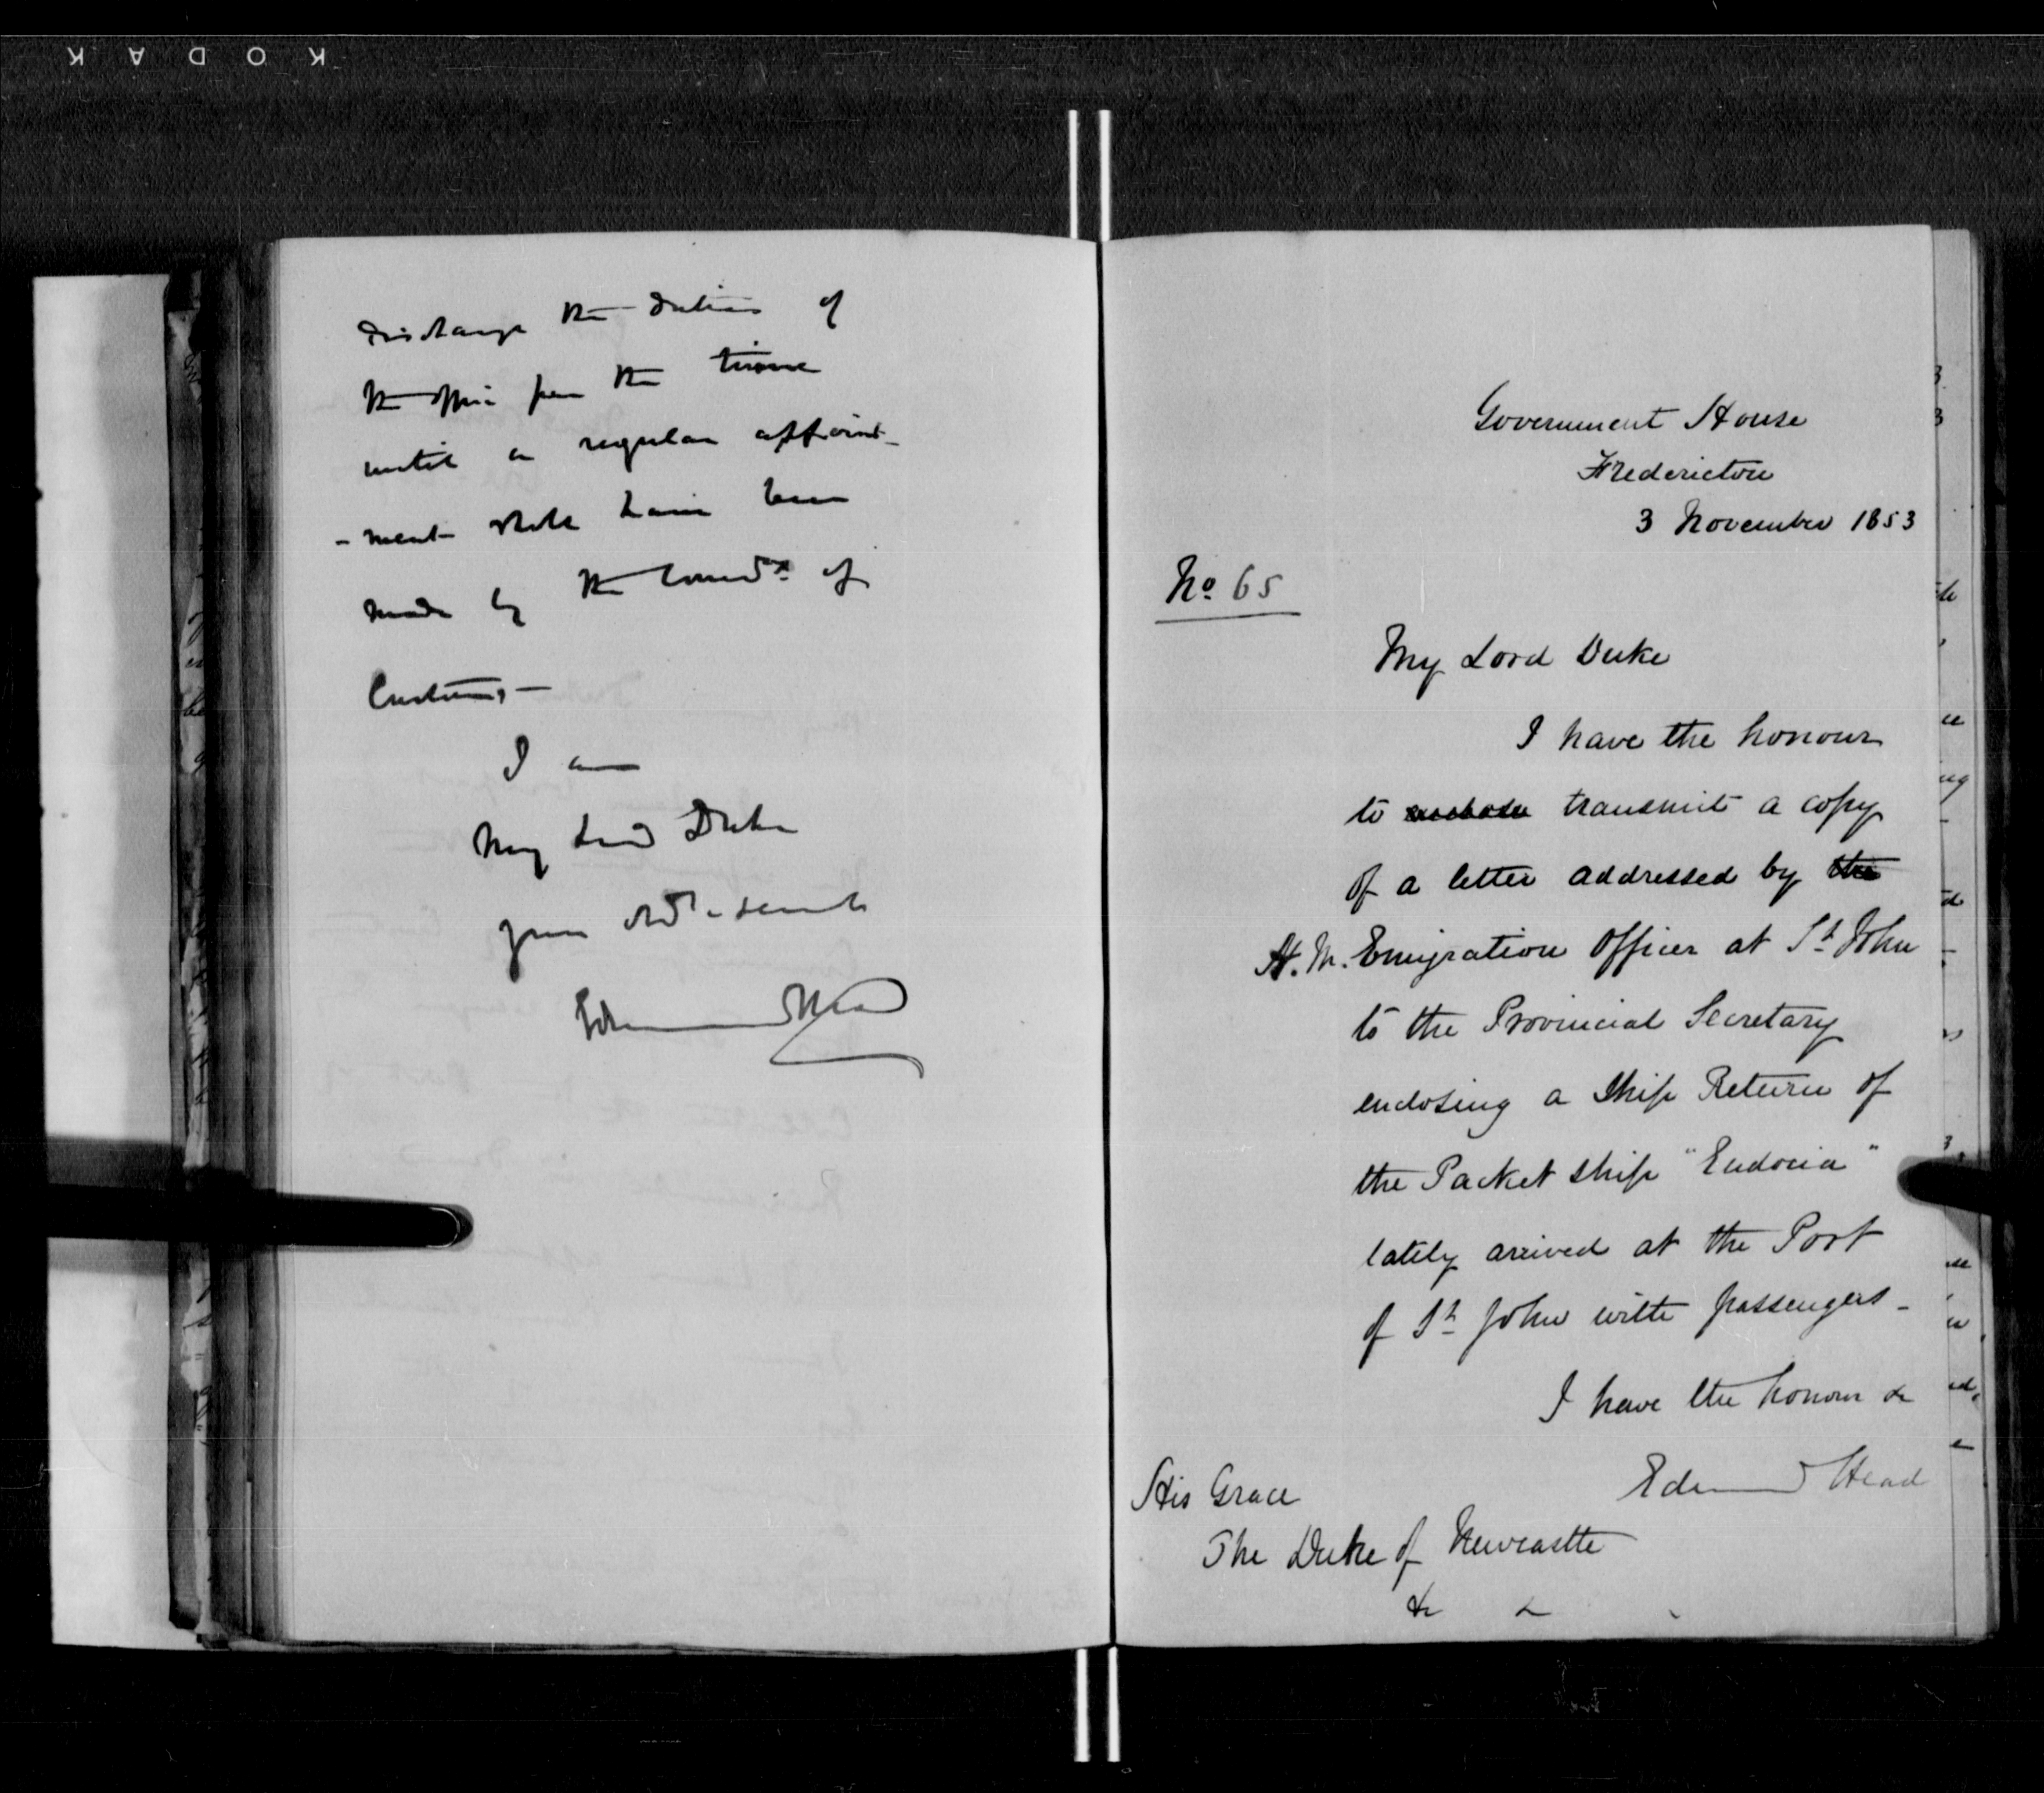 KODAK
discharge the duties of
the office for the time
until a regular appoint-
-ment shall have been
made by the Comrs of
Customs, —
I am
My Lord Duke
your obt servt
Edmund Head
Government House
Fredericton
3 November 1853
No. 65
My Lord Duke
I have the honour
to transmit a copy
of a letter addressed by the
H.M. Emigration Officer at St John
to the Provincial Secretary
enclosing a Ship Return of
the Packet ship "Eudocia"
lately arrived at the Port
of St John with passengers -
I have the honour &c
Edmund Head
His Grace
The Duke of Newcastle
&c &c